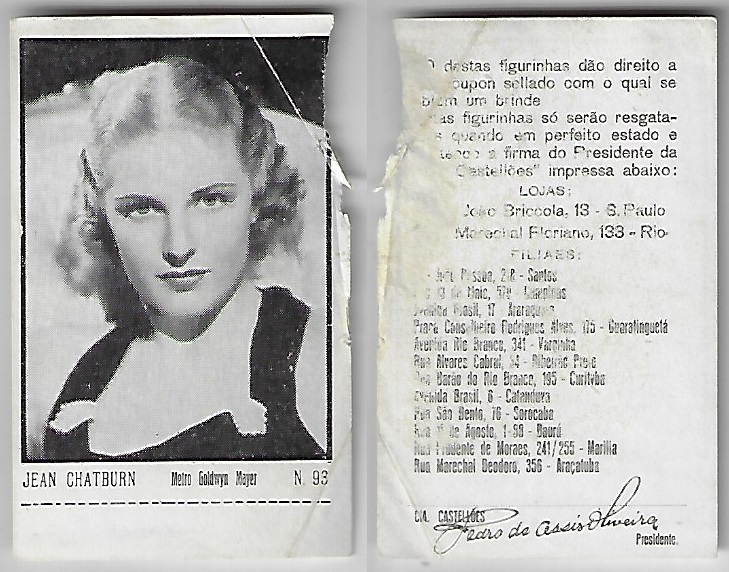 JEAN CHATBURN Metro Goldwyn Mayer N. 93
destas figurinhas dão direito a
coupon sellado com o qual se
um brinde
figurinhas só serão resgata-
quando em perfeito estado e
a firma do Presidente da
Castellões" impressa abaixo:
LOJAS:
João Briccola, 13 - S. Paulo
Marechal Floriano, 133 - Rio
FILIAES:
João Pessoa, - Santos
de Maio, - Campinas
Brasil, 17 - Araraquara
Praça Conselheiro Rodrigues Alves, 175 - Guaratinguetá
Avenida Rio Branco, 341 - Varginha
Rua Alvares Cabral, - Ribeirão Preto
Barão do Rio Branco, 195 - Curityba
Avenida Brasil, 6 - Catanduva
Rua São Bento, 76 - Sorocaba
Rua 1º de Agosto, 1-99 - Baurú
Rua Prudente de Moraes, 241/255 - Marilia
Rua Marechal Deodoro, 356 - Araçatuba
CIA. CASTELLÕES
Pedro de Assis Oliveira
Presidente.